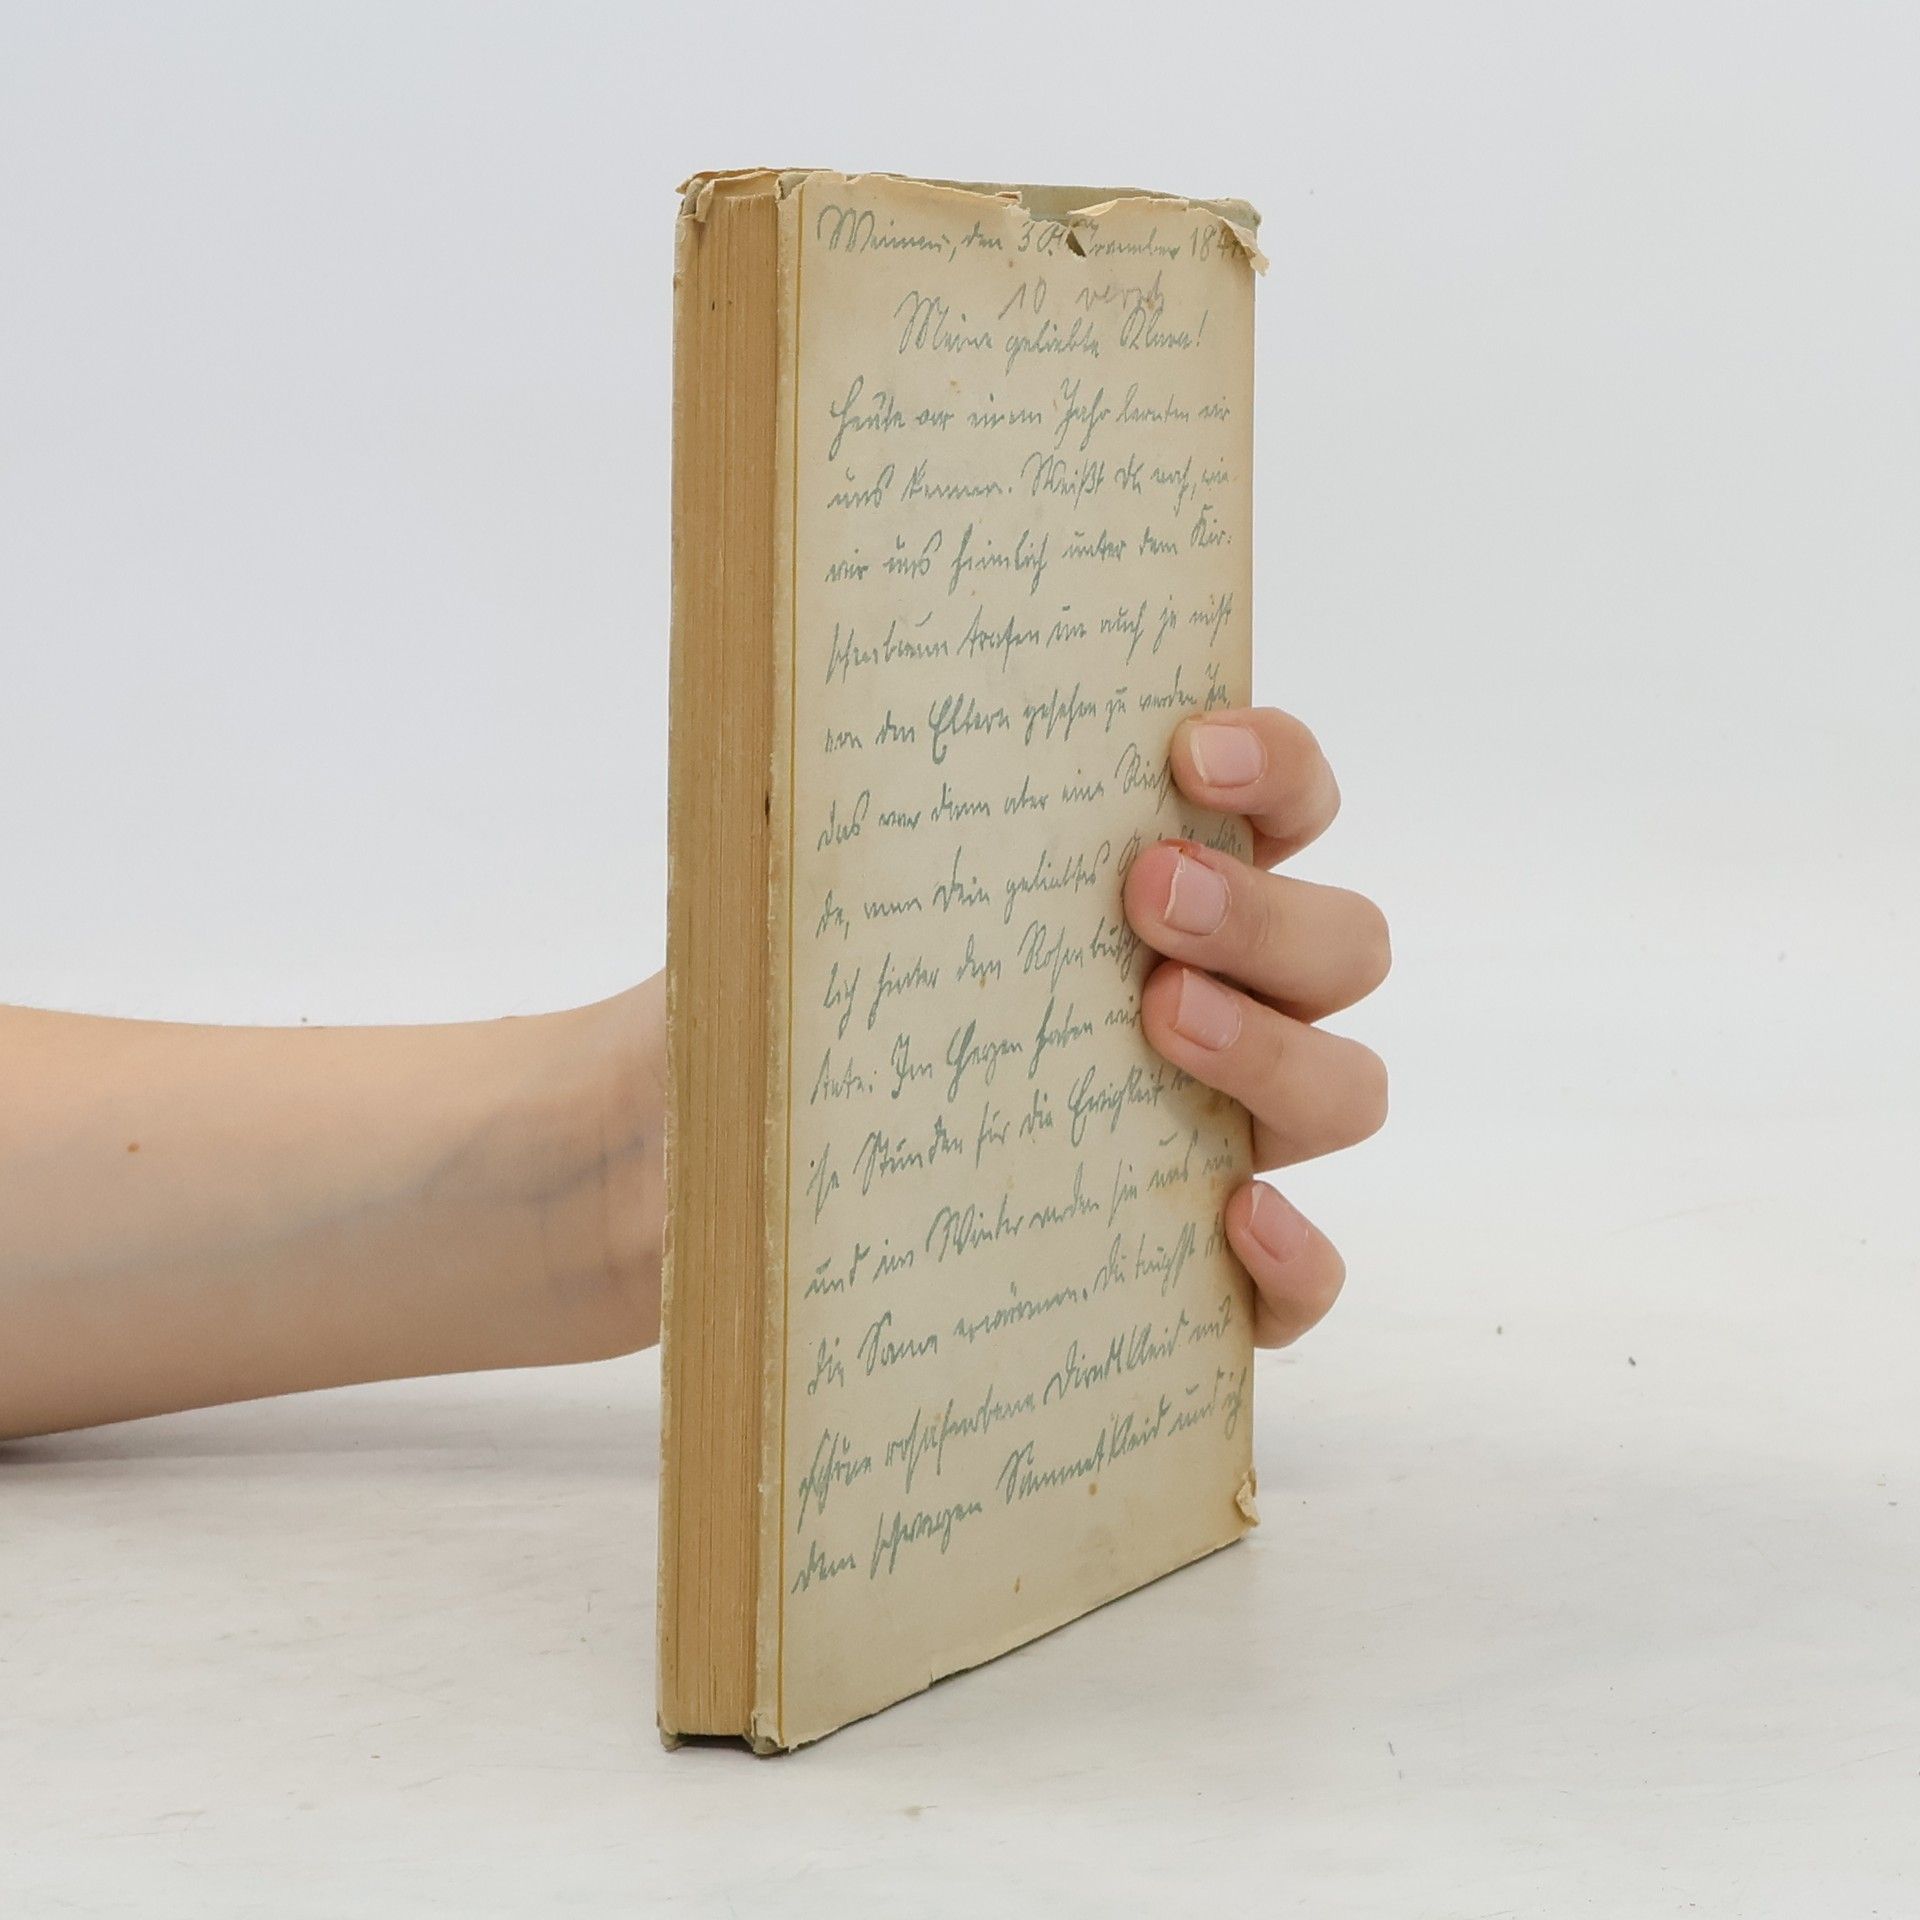 Weimar, den 30. November 184
10 versch
Meine geliebte Klara!
Heute vor einem Jahr lernten wir
uns kennen. Weißt Du noch, wie
wir uns heimlich unter dem Kir-
schenbaum trafen um auch ja nicht
von den Eltern gesehen zu werden Ja,
das war dann aber eine
de, wenn Dein geliebtes
lich hinter dem Rosenbusch
Im Herzen haben wir
Stunden für die Ewigkeit
und im Winter werden sie uns wie
die Sonne erwärmen. Du trugst das
schöne rosafarbene Dirndlkleid mit
dem schwarzen Sammetkleid und ich